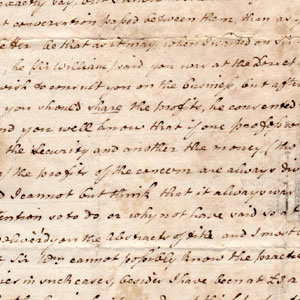 exactly say, but
at conversation passed between them than as
be that as it may, when
he Sir William, said you was at the
wish to consult you on the business but aft
you should share the profits, he consented
nd you well know that if one
the security and another the money, (tho
the profits of the concern are always
d I cannot but think that it always wa
tention so to do or why not have said so a
words on the abstracts of
t Sir Wm cannot possibly know the practi
in such cases, besides I have been at